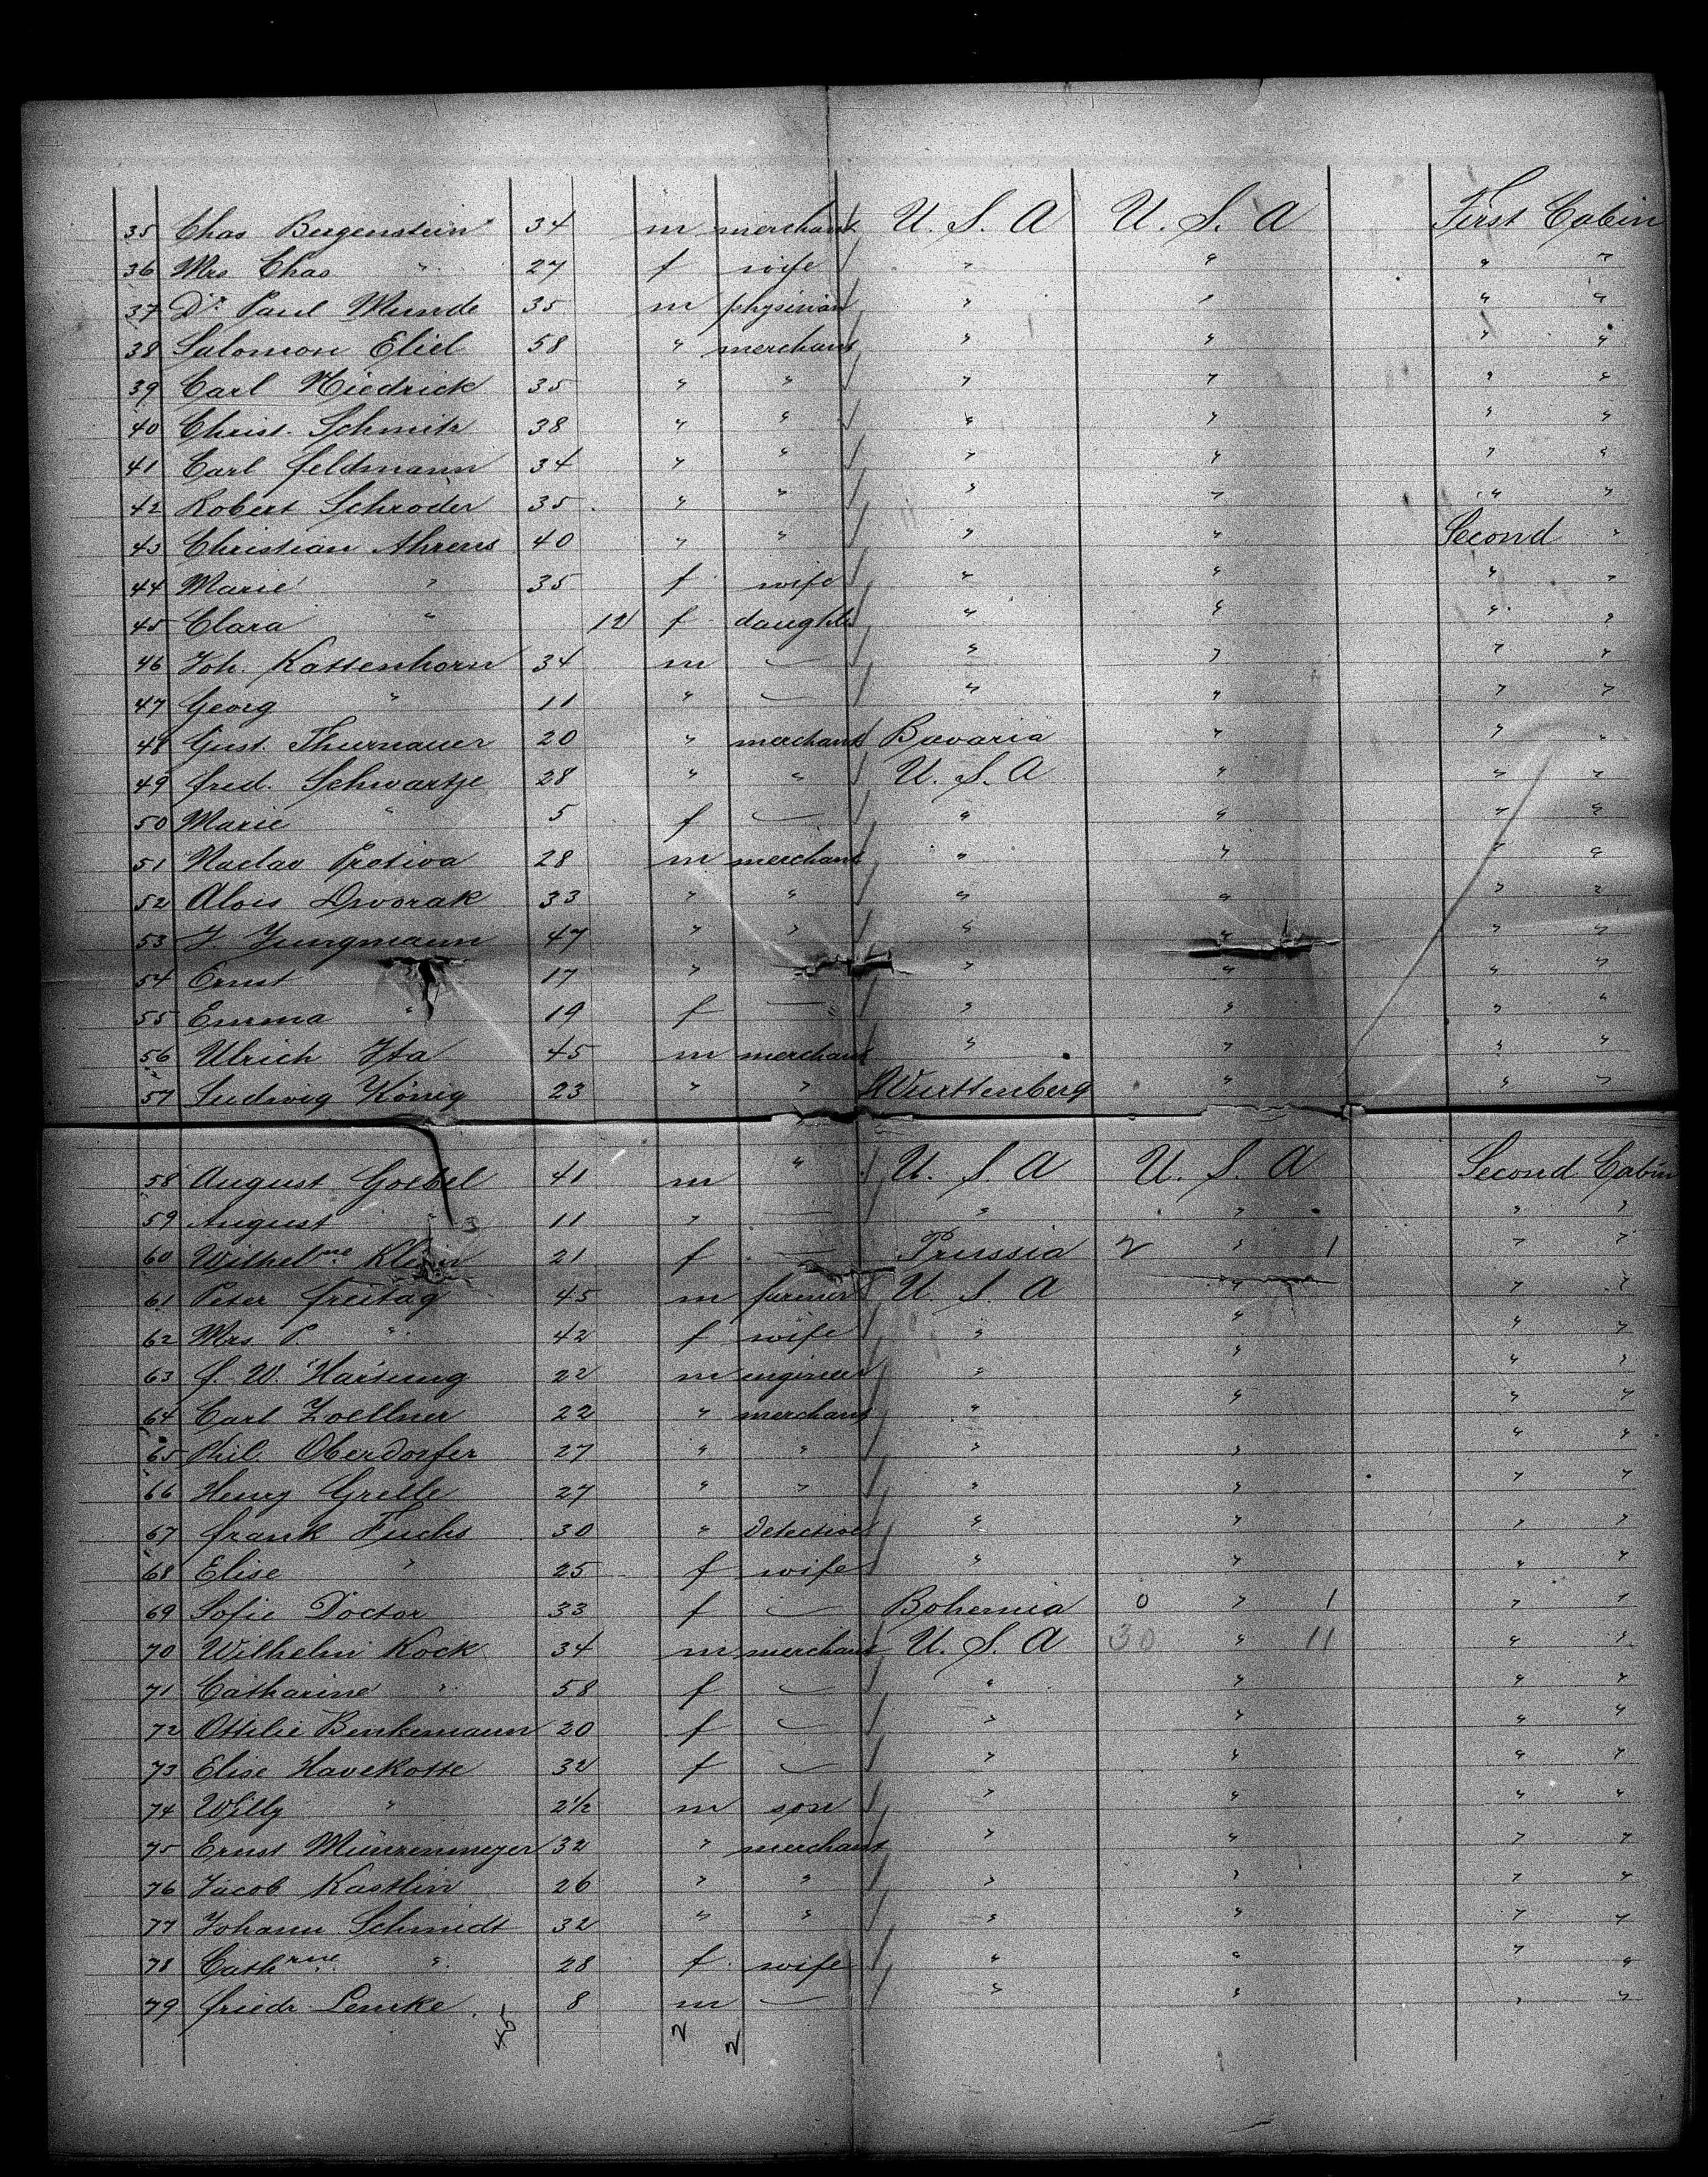 35 Chas Bergenstein 34 m merchant U. S. A U. S. A First Cabin
36 Mrs Chas " 27 f wife " " " "
37 Dr. Paul Munde 35 m physician " " " "
38 Salomon Eliel 58 " merchant " " " "
39 Carl Niedrick 35 " " " " " "
40 Christ. Schmitz 38 " " " " " "
41 Carl Feldmann 34 " " " " " "
42 Robert Schroder 35 " " " " " "
43 Christian Ahrens 40 " " " " Second "
44 Marie " 35 f wife " " " "
45 Clara " 12 f daughter " " " "
46 Joh. Kattenhorn 34 m — " " " "
47 Georg " 11 " — " " " "
48 Gust. Thurnauer 20 " merchant Bavaria " " "
49 Fred. Schwartje 28 " " U. S. A " " "
50 Marie " 5 f — " " " "
51 Vaclav Protiva 28 m merchant " " " "
52 Alois Dvorak 33 " " " " " "
53 J. Jungmann 47 " " " " " "
54 Ernst 17 " — " " " "
55 Emma " 19 f — " " " "
56 Ulrich Ita 45 m merchant " " " "
57 Ludwig König 23 " " Wurttenberg " " "
58 August Goebel 41 m " U. S. A U. S. A Second Cabin
59 August " 11 " — " " " "
60 Wilhelme Klein 21 f — Prussia 2 " 1 " "
61 Peter Freitag 45 m farmer U. S. A " " "
62 Mrs. P. " 42 f wife " " " "
63 F. W. Hartung 22 m engineer " " " "
64 Carl Zoellner 22 " merchant " " " "
65 Phil. Oberdorfer 27 " " " " " "
66 Henry Grelle 27 " " " " " "
67 Frank Fuchs 30 " Detective " " " "
68 Elise " 25 f wife " " " "
69 Sofie Doctor 33 f — Bohemia 0 " 1 " "
70 Wilhelm Kock 34 m merchant U. S. A 30 " 11 " "
71 Catharine " 58 f — " " " "
72 Ottilie Benkemann 20 f — " " " "
73 Elise Havekotte 32 f — " " " "
74 Willy " 2 1/2 m son " " " "
75 Ernst Münzenmeyer 32 " merchant " " " "
76 Jacob Kastlin 26 " " " " " "
77 Johann Schmidt 32 " " " " " "
78 Cathrine " 28 f wife " " " "
79 Friedr. Lemke 8 m — " " " "
45 2 2